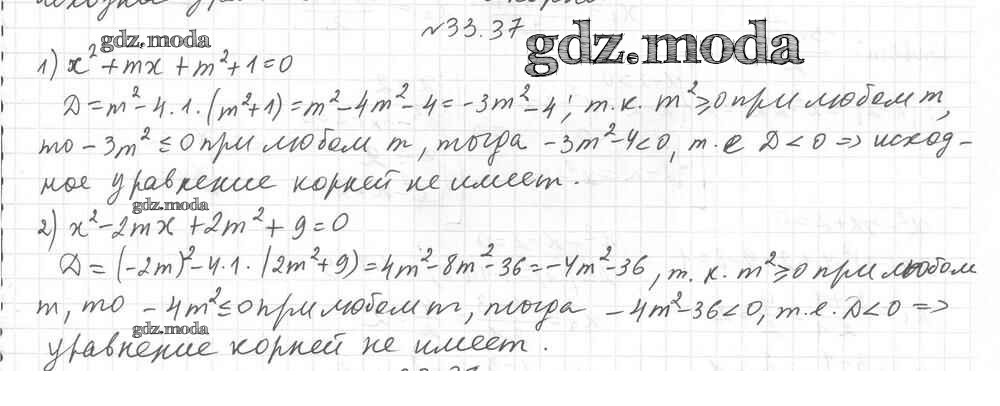 №33.37
gdz.moda
gdz.moda
1) x²+mx+m²+1=0
Д=m²-4.1.(m²+1)=m²-4m²-4=-3m²-4; т.к. m²≥0 при любом m,
то -3m²≤0 при любом m, тогда -3m²-4<0, т.е Д<0 => исход-
ное уравнение корней не имеет.
gdz.moda
2) x²-2mx+2m²+9=0
Д=(-2m)²-4.1.(2m²+9)=4m²-8m²-36=-4m²-36, т.к. m²≥0 при любом
m, то -4m²≤0 при любом m, тогда -4m²-36<0, т.е. Д<0 =>
gdz.moda
уравнение корней не имеет.